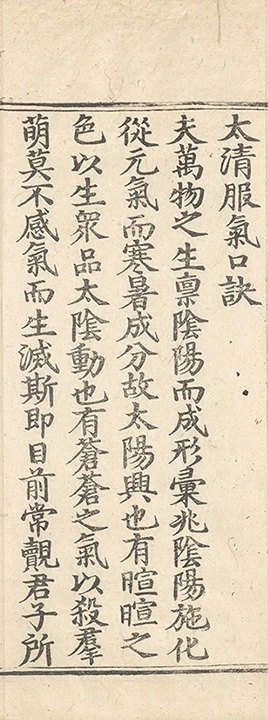 太清服氣口訣
夫萬物之生禀陰陽而成形彙兆陰陽施化
從元氣而寒暑成分故太陽興也有暄暄之
色以生眾品太陰動也有蒼蒼之氣以殺羣
萌莫不感氣而生滅斯即目前常覿君子所